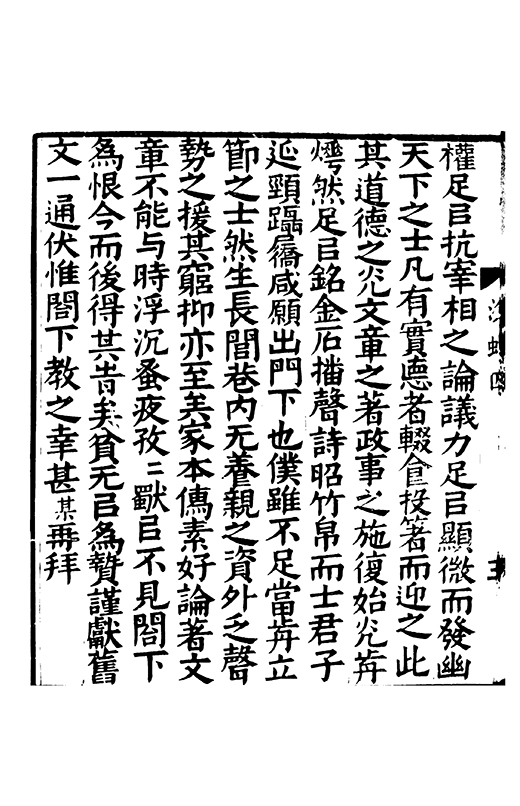 權足㠯抗宰相之論議力足㠯顯微而發幽
天下之士凡有實悳者輟飡投箸而迎之此
其道德之光文章之著政事之施復始光𠔥
爗然足㠯銘金石播聲詩昭竹帛而士君子
延頸躡屩咸願出門下也僕雖不足當𠔥立
節之士然生長閭巷内无養親之資外乏聲
勢之援其窮抑亦至矣家本傳素好論著文
章不能与時浮沉蚤夜孜〻獸㠯不見閤下
爲恨今而後得其旹矣貧无㠯爲贄謹獻舊
文一通伏惟閤下教之幸甚某再拜